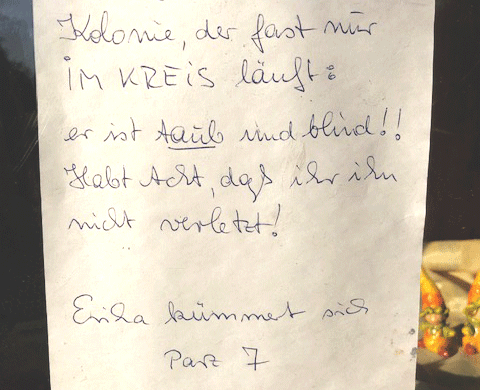 Kolonie, der fast nur
IM KREIS läuft:
er ist taub und blind!!
Habt Acht, daß ihr ihn
nicht verletzt!
Erika kümmert sich
Parz 7